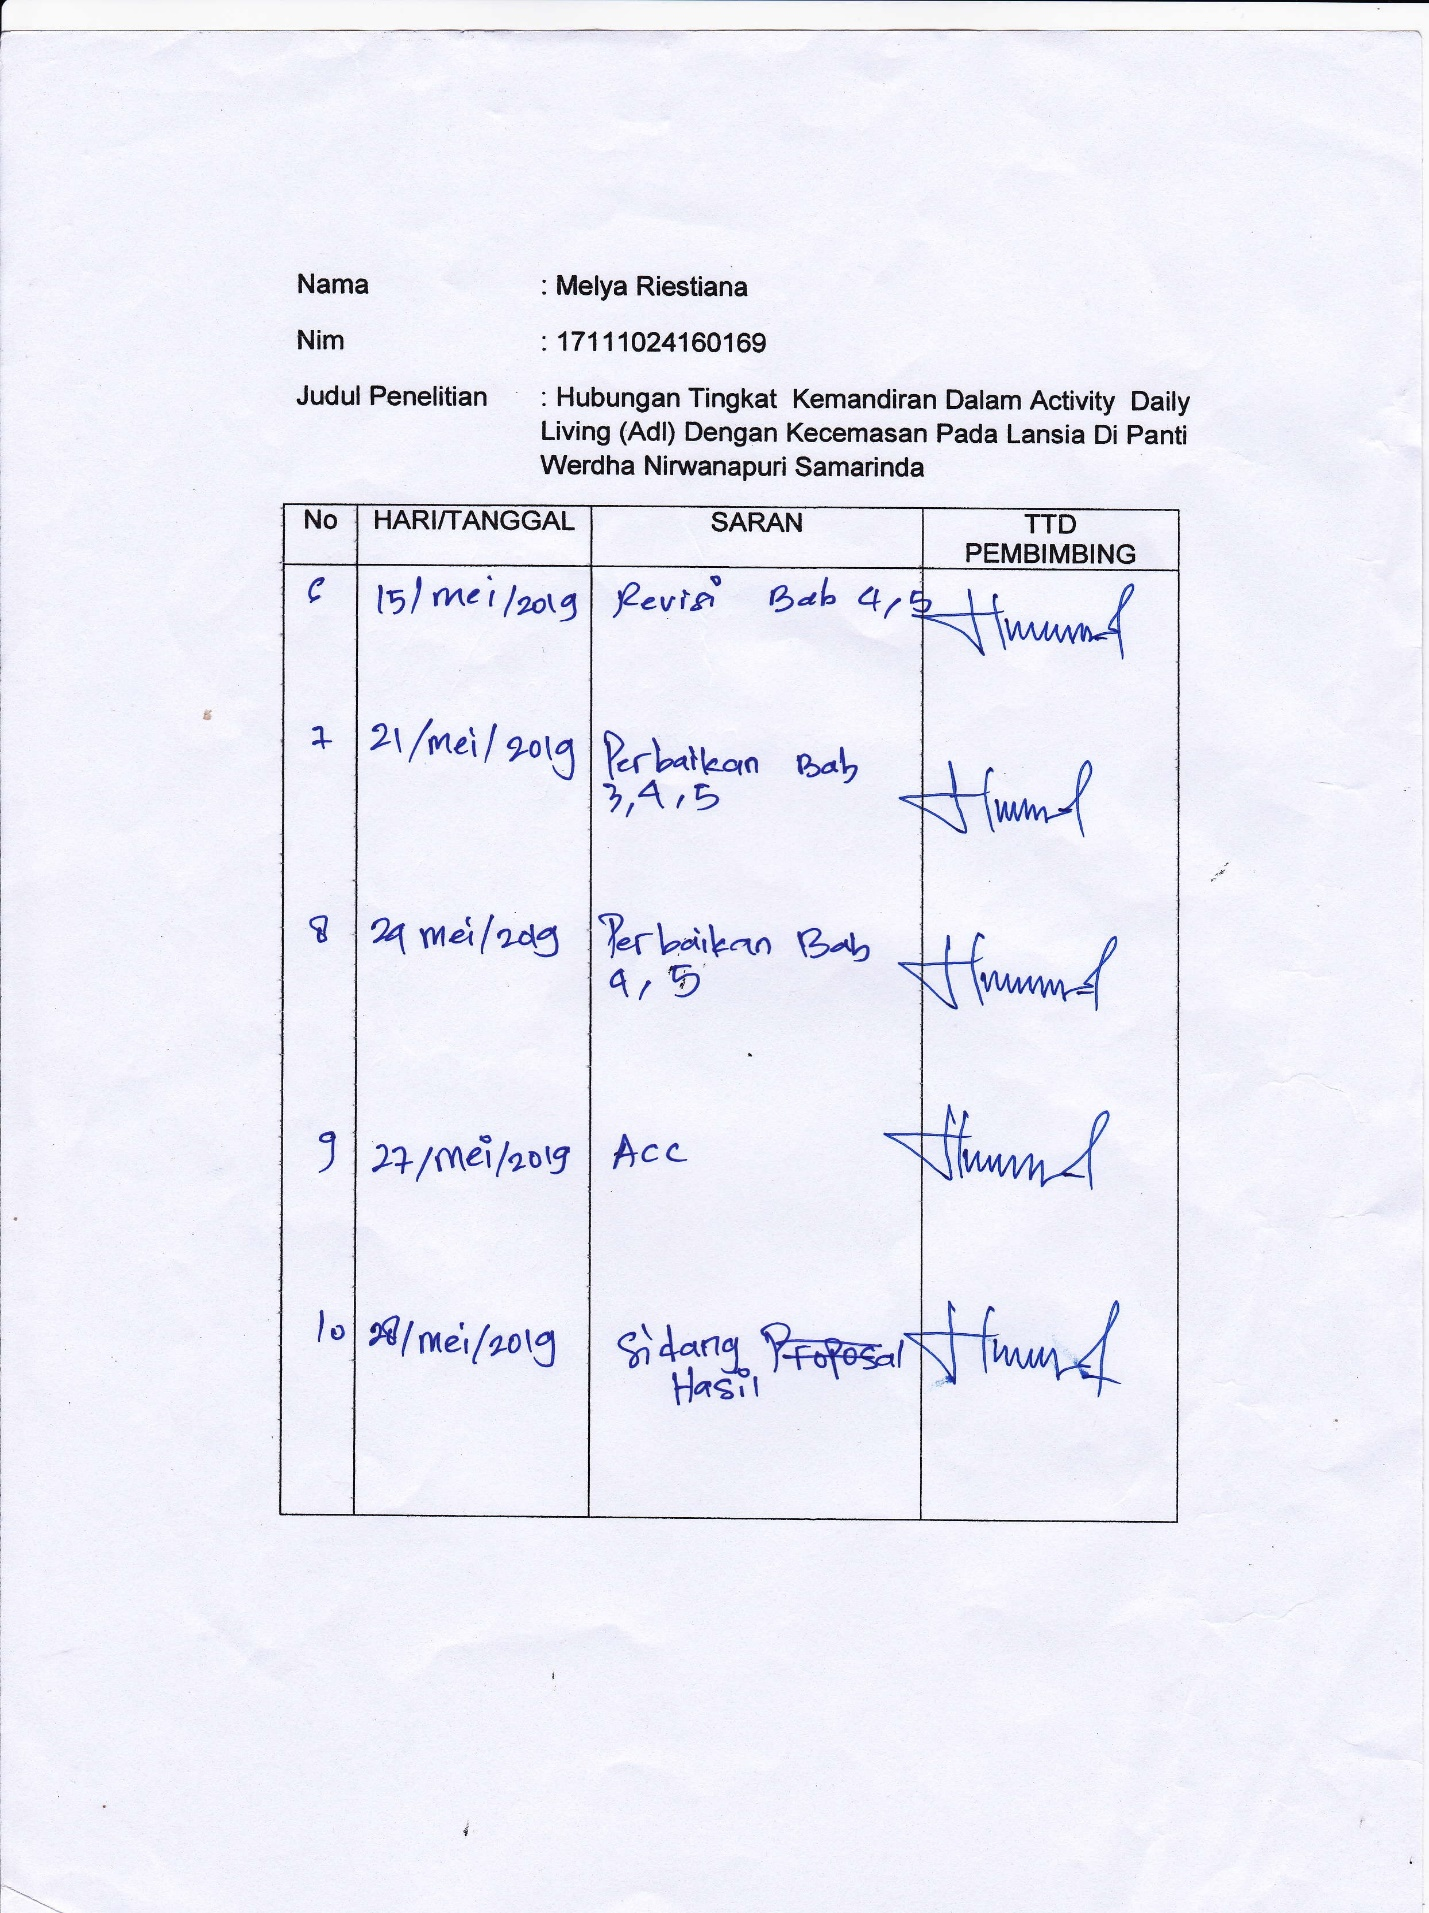 Nama : Melya Riestiana
Nim : 17111024160169
Judul Penelitian : Hubungan Tingkat Kemandiran Dalam Activity Daily
Living (Adl) Dengan Kecemasan Pada Lansia Di Panti
Werdha Nirwanapuri Samarinda
No HARI/TANGGAL SARAN TTD
PEMBIMBING
6 15/mei/2019 Revisi Bab 4,5
7 21/mei/2019 Perbaikan Bab
3,4,5
8 24 mei/2019 Perbaikan Bab
4,5
9 27/mei/2019 Acc
10 28/mei/2019 Sidang Proposal
Hasil